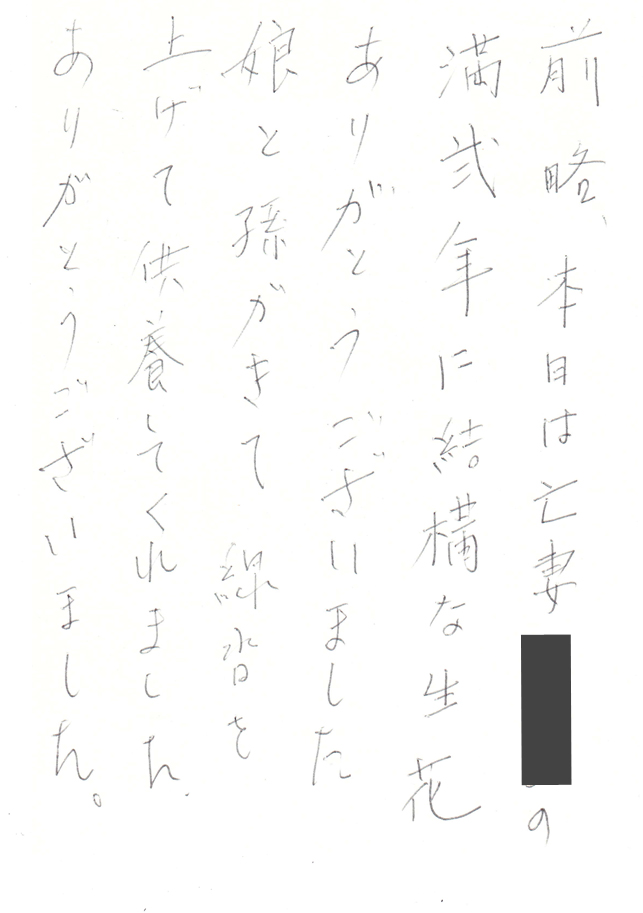 前略、本日は亡妻の
満弐年に結構な生花
ありがとうございました
娘と孫がきて線香を
上げて供養してくれました。
ありがとうございました。